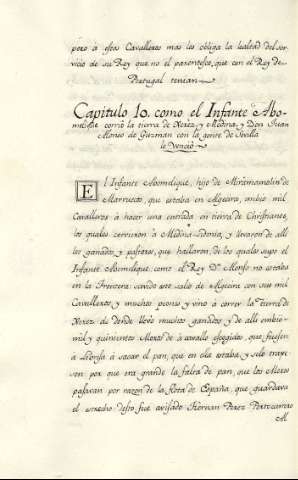 pero à estos Cavalleros mas les obliga la lealtad del ser-
vicio de su Rey que no el parentesco, que con el Rey de
Portugal tenian.
Capitulo 10. como el Infante Abo-
melique corriò la tierra de Xerez, y Medina, y Don Juan
Alonso de Guzman con la gente de Sevilla
le Venciò.
El Infante Abomelique, hijo de Miramamolin de
Marruecos, que estaba en Algecira, embió mil
Cavalleros à hacer una entrada en tierra de Christianos,
los quales corrieron à Medina Sidonia, y llevaron de alli
los ganados, y pastores, que hallaron, de los quales supo el
Infante Abomelique, como el Rey Dn. Alonso no estaba
en la Frontera, viendo esto salio de Algecira con seis mil
Cavalleros, y muchos peones, y vino à correr la tierra de
Xerez, de donde llevò muchos ganados, y de alli embió
mil y quinientos Moros de à cavallo escogidos, que fuesen
à Lebrija à sacar el pan, que en ella estaba, y selo truje-
sen por que era grande la falta de pan, que los Moros
pasaban por razon de la flota de España, que guardava
el estrecho desto fue avisado Fernan Perez Portocarrero
Al